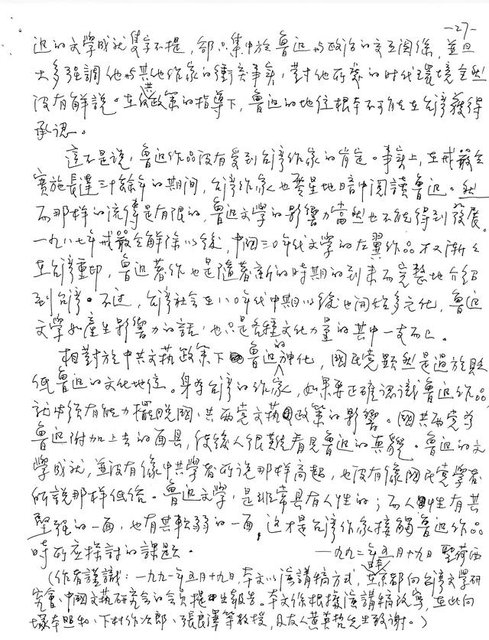 -27-
迅的文學成就隻字不提,卻只集中於魯迅與政治的交互關係,並且
大多強調他與其他作家的衝突事實,對他所處的時代環境全然
沒有解說。在這政策的指導下,魯迅的地位根本不可能在台灣獲得
承認。
這不是說,魯迅作品沒有受到台灣作家的肯定。事實上,在戒嚴令
實施長達三十餘年的期間,台灣作家也零星地暗中閱讀魯迅。然
而那樣的流傳是有限的,魯迅文學的影響力當然也不能得到發展。
一九八七年戒嚴令解除以後,中國三〇年代文學的左翼作品才又漸漸
在台灣重印,魯迅著作也是隨著新的時期的到來而完整地介紹
到台灣。不過,台灣社會在八〇年代中期以後也開始多元化,魯迅
文學如產生影響力的話,也只是各種文化力量的其中一支而已。
相對於中共文藝政策下魯迅的神化,國民黨顯然是過於貶
低魯迅的文化地位。身為台灣的作家,如果要正確認識魯迅作品,
就必須有能力擺脫國、共兩黨文藝政策的影響。國共兩黨為
魯迅附加上去的面具,使後人很難看見魯迅的真貌。魯迅的文
學成就,並沒有像中共學者所說那樣高超,也沒有像國民黨學者
所說那樣低俗。魯迅文學,是非常具有人性的;而人性有其
堅強的一面,也有其軟弱的一面,這才是台灣作家接觸魯迅作品
時所應探討的課題。
一九九二年五月十九日 聖荷西
(作者謹識:一九九一年五月十九日,本文以演講稿方式,在京都向台灣文學研
究會、中國文藝研究會的會員提出報告。本文係根據演講稿改寫,在此向
塚本照和、下村作次郎、張良澤等教授,及友人黃英哲先生致謝。)